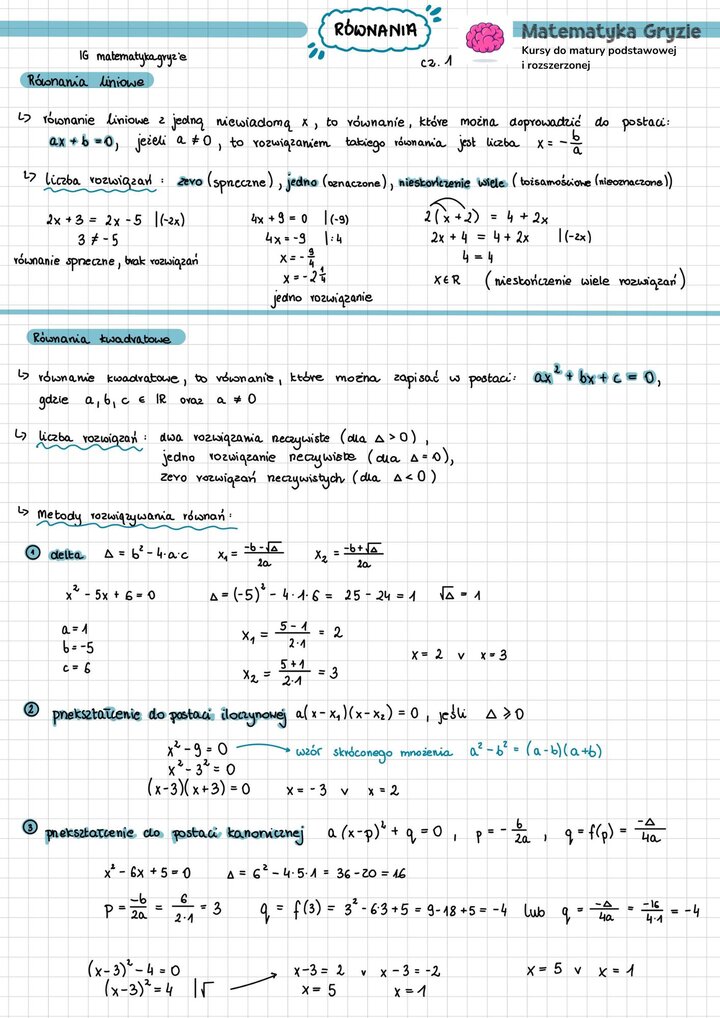 RÓWNANIA
cz. 1
Matematyka Gryzie
Kursy do matury podstawowej
i rozszerzonej
IG matematyka.gryzie
Równania liniowe
↳ równanie liniowe z jedną niewiadomą x, to równanie, które można doprowadzić do postaci:
ax + b = 0, jeżeli a ≠ 0, to rozwiązaniem takiego równania jest liczba x = - b/a
↳ liczba rozwiązań: zero (sprzeczne), jedno (oznaczone), nieskończenie wiele (tożsamościowe (nieoznaczone))
2x + 3 = 2x - 5 |(-2x)
3 ≠ -5
równanie sprzeczne, brak rozwiązań
4x + 9 = 0 |(-9)
4x = -9 |:4
x = - 9/4
x = -2 1/4
jedno rozwiązanie
2(x+2) = 4 + 2x
2x + 4 = 4 + 2x |(-2x)
4 = 4
x ∈ R (nieskończenie wiele rozwiązań)
Równania kwadratowe
↳ równanie kwadratowe, to równanie, które można zapisać w postaci: ax² + bx + c = 0,
gdzie a, b, c ∈ R oraz a ≠ 0
↳ liczba rozwiązań: dwa rozwiązania rzeczywiste (dla Δ > 0),
jedno rozwiązanie rzeczywiste (dla Δ = 0),
zero rozwiązań rzeczywistych (dla Δ < 0)
↳ Metody rozwiązywania równań:
① delta Δ = b² - 4·a·c x₁ = (-b-√Δ)/2a x₂ = (-b+√Δ)/2a
x² - 5x + 6 = 0 Δ = (-5)² - 4·1·6 = 25 - 24 = 1 √Δ = 1
a = 1
b = -5
c = 6
x₁ = (5-1)/(2·1) = 2
x₂ = (5+1)/(2·1) = 3
x = 2 v x = 3
② przekształcenie do postaci iloczynowej a(x-x₁)(x-x₂) = 0, jeśli Δ ⩾ 0
x² - 9 = 0 → wzór skróconego mnożenia a² - b² = (a-b)(a+b)
x² - 3² = 0
(x-3)(x+3) = 0 x = -3 v x = 2
③ przekształcenie do postaci kanonicznej a(x-p)² + q = 0, p = - b/2a, q = f(p) = -Δ/4a
x² - 6x + 5 = 0 Δ = 6² - 4·5·1 = 36 - 20 = 16
p = -b/2a = 6/(2·1) = 3 q = f(3) = 3² - 6·3 + 5 = 9 - 18 + 5 = -4 lub q = -Δ/4a = -16/(4·1) = -4
(x-3)² - 4 = 0
(x-3)² = 4 |√
x-3 = 2 v x-3 = -2
x = 5 x = 1
x = 5 v x = 1